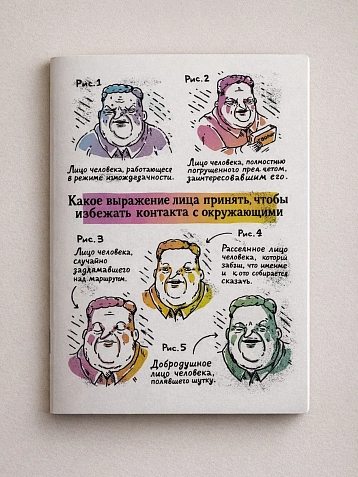 Рис.1
Рис.2
Лицо человека, работающесв
в режиме измождедачности.
Лицо человека, полмостию
погрущенного пред четом,
заинтересовавшим его.
Какое выражение лица принять, чтобы
избежать контакта с окружающими
Рис.3
Лицо человека,
случайно
задламавшего
над маршрутм.
Рис.4
Расселнное лицо
человека, которій
забыі, что именне
и к.ото собирается
сказать.
Рис.5
Добродушное
лицо человека,
полявшего шутку.